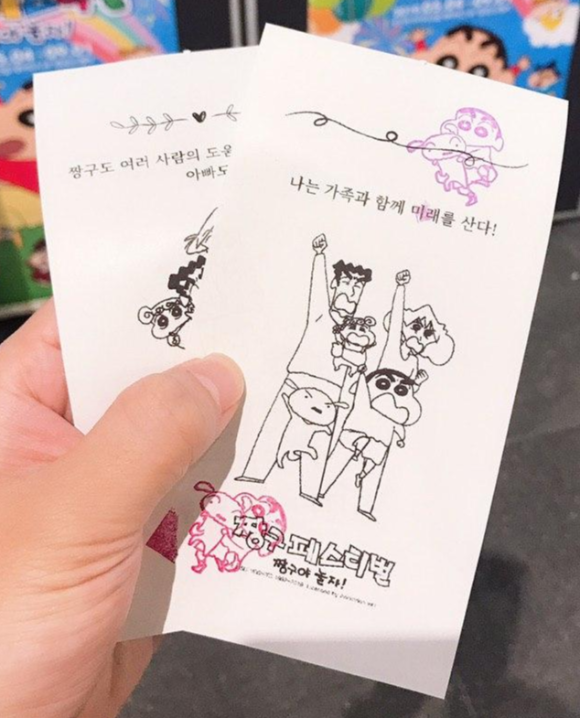 짱구도 여러 사람의 도움
아빠도
나는 가족과 함께 미래를 산다!
짱구페스티벌
짱구야 놀자!